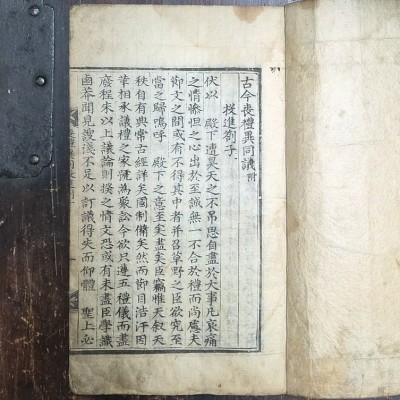 古今喪禮異同議附
擬進劄子
伏以　殿下遭昊天之不吊思自盡於大事凡哀痛
之情慘怛之心出於至誠無一不合於禮而尚慮夫
節文之間或有不得其中者并召草野之臣欲究至
當之歸嗚呼　殿下之意至矣盡矣臣竊惟天叙天
秩自有典常古經詳矣國制備矣然而節目浩汗因
革相承議禮之家號為聚訟今欲只遵五禮儀而盡
廢程朱以上議論則揆之情文恐或有未盡臣學識
鹵莽聞見謏淺不足以訂議得失而仰體　聖上必